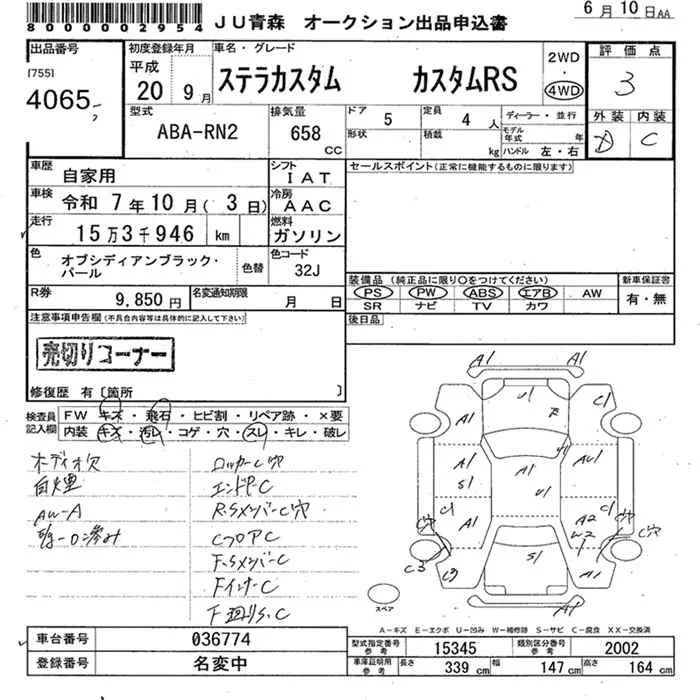 6月10日AA
8000002954
JU青森 オークション出品申込書
出品番号 初度登録年月 車名・グレード 2WD・4WD 評価点
[755] 平成 ステラカスタム カスタムRS 3
4065 20 9月
型式 排気量 ドア 5 定員 4人 ディーラー・並行 外装 内装
ABA-RN2 658 CC 形状 積載 kg モデル年式 年 ハンドル 左・右 D C
車歴 自家用 シフト IAT セールスポイント(正常に機能するものに限ります)
車検 令和 7年10月(3日) 冷房 AAC
走行 15万3千946 km 燃料 ガソリン
色 オブシディアンブラック・パール 色替 色コード 32J
装備品(純正品に限り○をつけてください) 新車保証書
R券 9,850円 名変通知期限 月 日 PS PW ABS エアB AW 有・無
SR ナビ TV カワ
注意事項申告欄(不具合内容等は具体的に記入して下さい) 後日品
売切りコーナー
修復歴 有〔箇所 〕
検査員記入欄 FW キズ・飛石・ヒビ割・リペア跡・×要
内装 キズ・汚レ・コゲ・穴・スレ・キレ・破レ
オーディオ欠 ロッカーC穴
自煙 エンドP-C
AW-A R.SメンバーC穴
CフロアC
F.SメンバーC
FインナーC
A1 A1
A1 U1 C1
A1 A1 U1 AU1
S1
C1 A1 A2 C1
C穴 W2 C穴
C3 C3 S1 A1
A1
スペア
A-キズ E-エクボ U-凹み W-補修跡 S-サビ C-腐食 XX-交換済
車台番号 036774 型式指定番号 参考 15345 類別区分番号 参考 2002
登録番号 名変中 車庫証明用 参考 長さ 339cm 幅 147cm 高さ 164cm